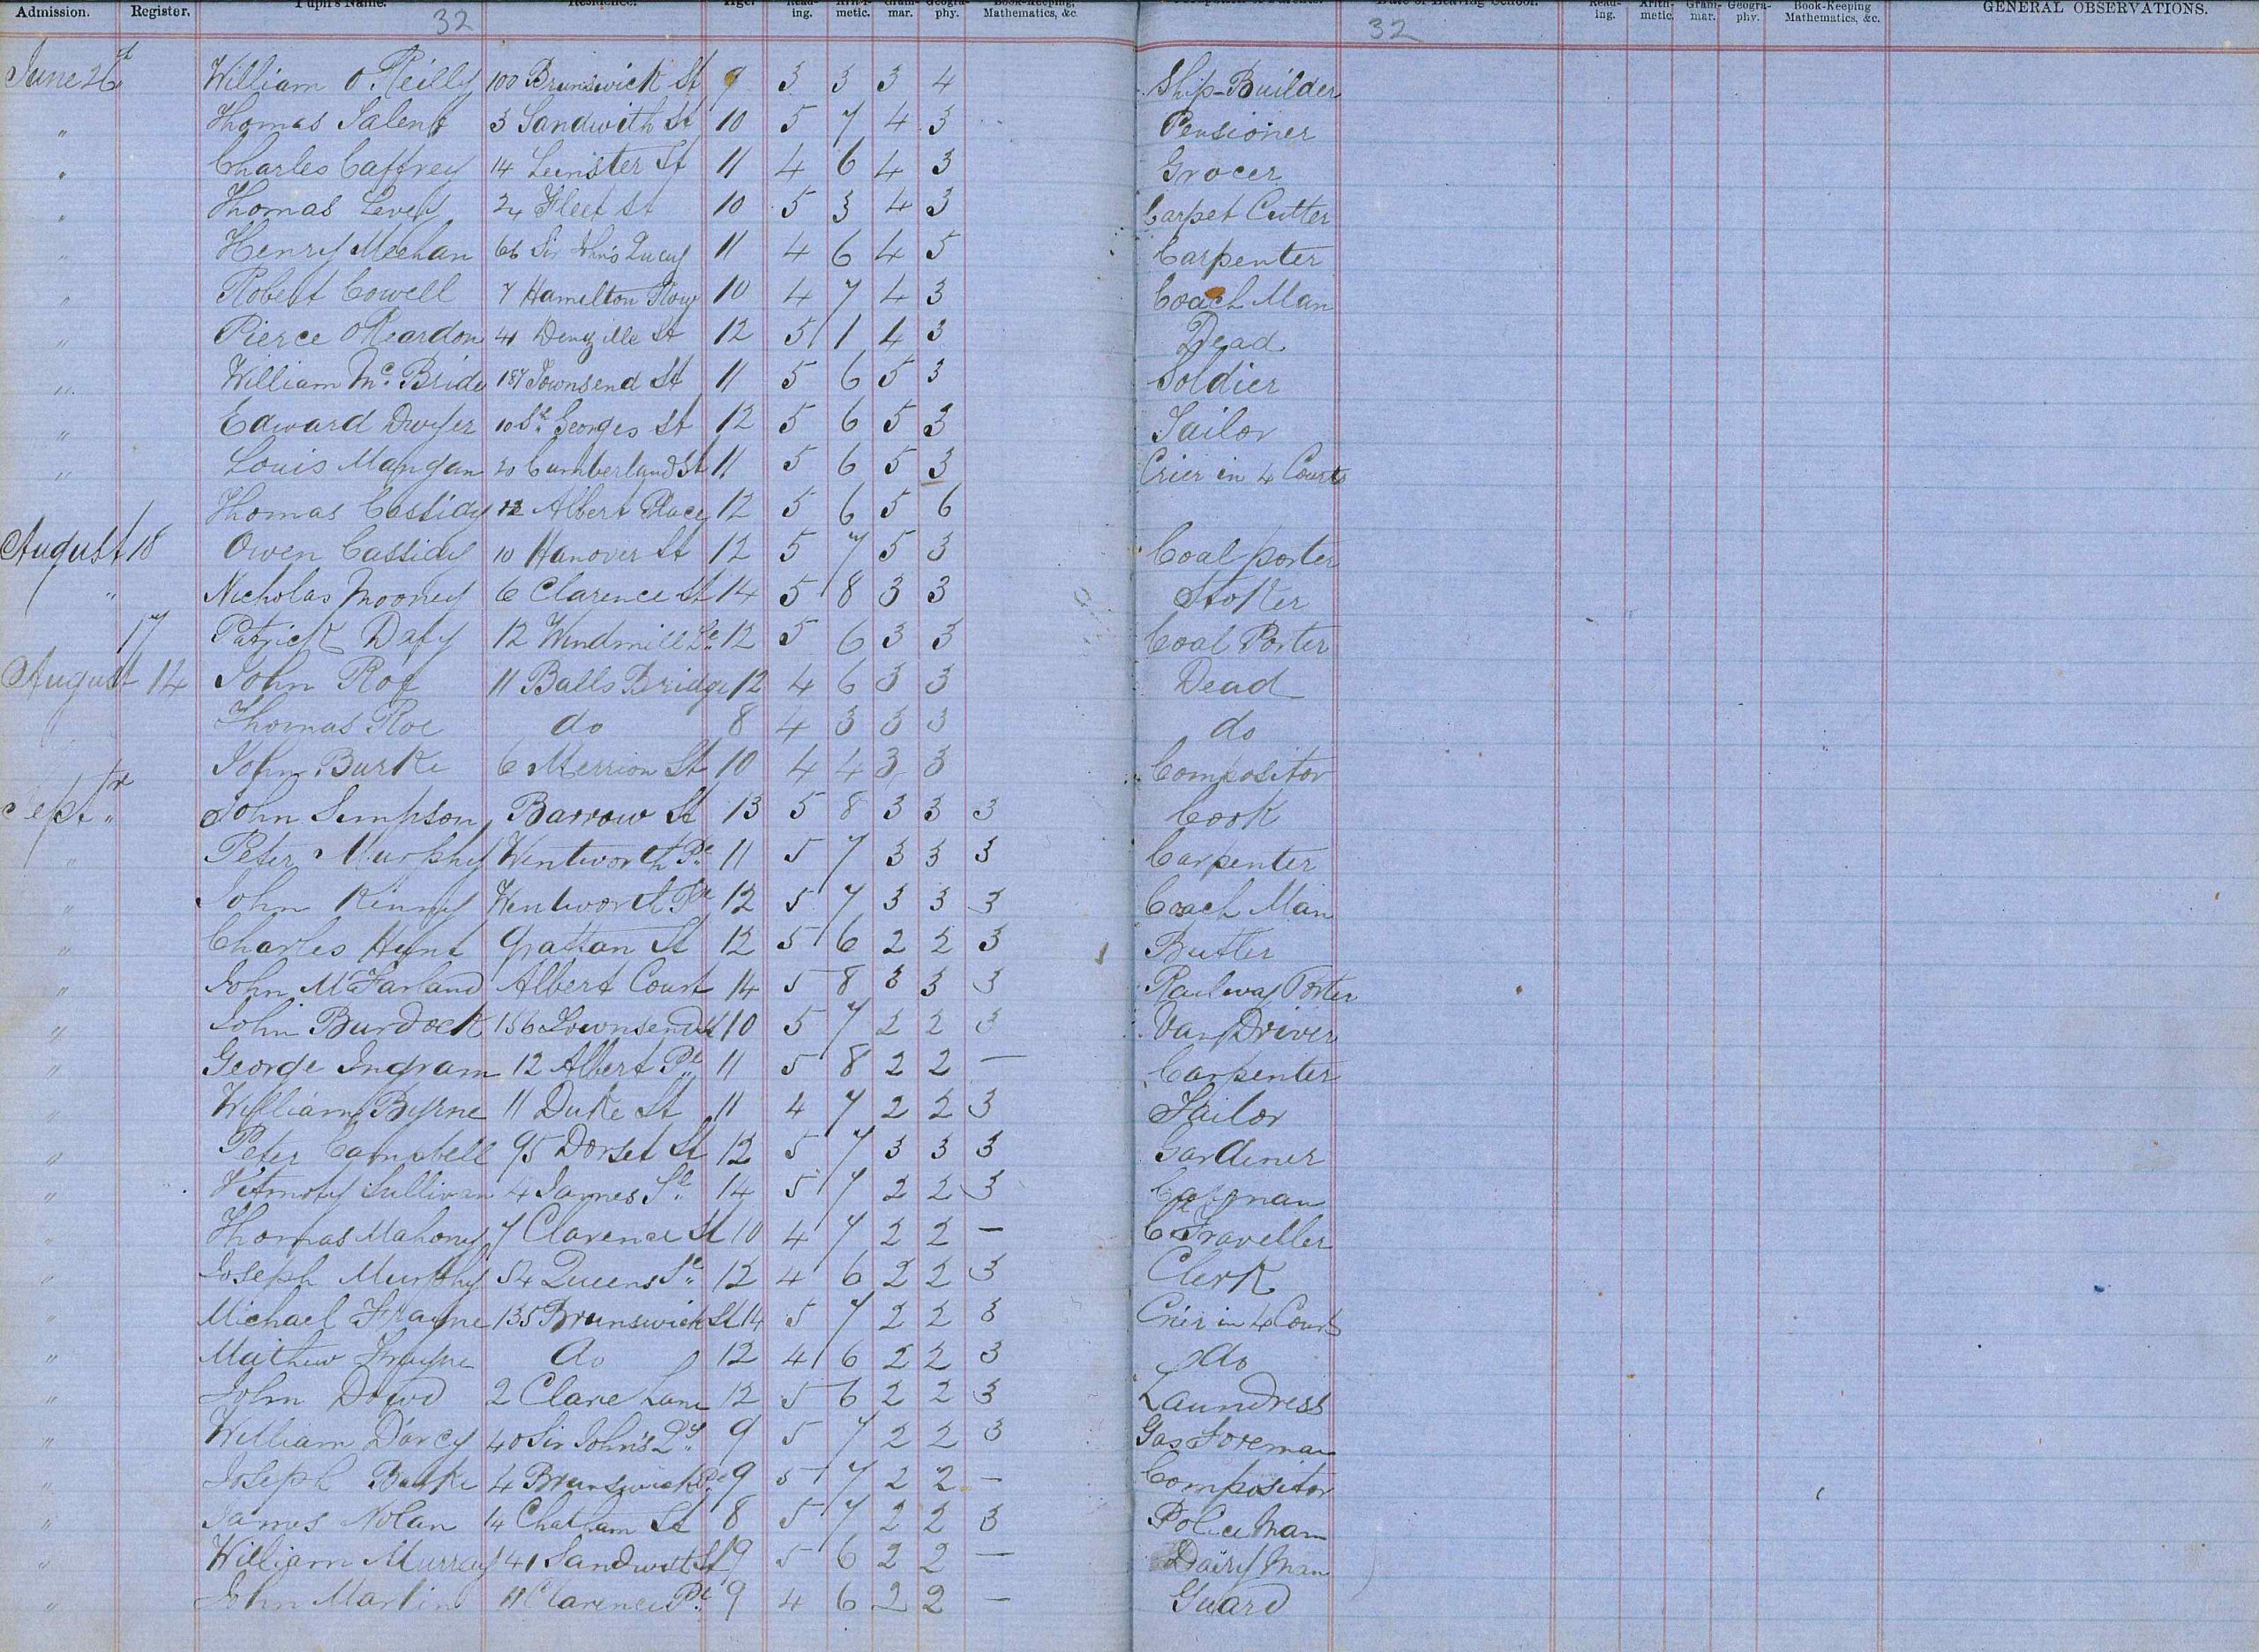 Admission. Register. Pupil's Name. Residence. Age. Read-ing. Arith-metic. Gram-mar. Geogra-phy. Book-Keeping, Mathematics, &c. Date of Leaving School. Read-ing. Arith-metic. Gram-mar. Geogra-phy. Book-Keeping Mathematics, &c. GENERAL OBSERVATIONS.
32 32
June 26 William O'Reilly 100 Brunswick St 9 3 3 3 4 Ship-Builder
" Thomas Salent 3 Sandwith St 10 5 7 4 3 Pensioner
" Charles Caffrey 14 Leinster St 11 4 6 4 3 Grocer
" Thomas Levey 24 Fleet St 10 5 3 4 3 Carpet Cutter
" Henry Meehan 66 Sir John's Quay 11 4 6 4 5 Carpenter
" Robert Cowell 7 Hamilton Row 10 4 7 4 3 Coach Man
" Pierce O'Reardon 41 Denzille St 12 5 1 4 3 Dead
" William Mc. Bride 187 Townsend St 11 5 6 5 3 Soldier
" Edward Dwyer 10 St. Georges St 12 5 6 5 3 Sailor
" Louis Mangan 20 Cumberland St 11 5 6 5 3 Crier in 4 Courts
Thomas Cassidy 12 Albert Place 12 5 6 5 6
August 18 Owen Cassidy 10 Hanover St 12 5 7 5 3 Coal porter
" Nicholas Mooney 6 Clarence St 14 5 8 3 3 Stoker
17 Patrick Daly 12 Windmill Le 12 5 6 3 3 Coal Porter
August 14 John Roe 11 Balls Bridge 12 4 6 3 3 Dead
Thomas Roe do 8 4 3 3 3 do
John Burke 6 Merrion St 10 4 4 3 3 Compositor
Septr " John Simpson Barrow St 13 5 8 3 3 3 Cook
" Peter Murphy Wentworth Pe 11 5 7 3 3 3 Carpenter
" John Kinny Wentworth Ple 12 5 7 3 3 3 Coach Man
" Charles Hunt Grattan St 12 5 6 2 2 3 Butler
" John McFarland Albert Court 14 5 8 3 3 3 Railway Porter
" John Burdock 156 Townsend St 10 5 7 2 2 3 Van Driver
" George Ingram 12 Albert Pl 11 5 8 2 2 — Carpenter
" William Byrne 11 Duke St 11 4 7 2 2 3 Tailor
" Peter Campbell 95 Dorset St 12 5 7 3 3 3 Gardiner
" Timothy Sullivan 4 James 14 5 7 2 2 3
" Thomas Mahony 7 Clarence St 10 4 7 2 2 — C Traveller
" Joseph Murphy 54 Queens 12 4 6 2 2 3 Clerk
" Michael Frayne 135 Brunswick St 14 5 7 2 2 3 Crier in 4 Courts
" Mathew Frayne do 12 4 6 2 2 3 do
" John Dowd 2 Clare Lane 12 5 6 2 2 3 Laundress
" William Darcy 40 Sir John's Qy 9 5 7 2 2 3 Gas Foreman
" Joseph Burke 4 Brunswick Pe 9 5 7 2 2 — Compositor
" James Nolan 14 Chatham St 8 5 7 2 2 3 Police Man
" William Murray 41 Sandwith St 9 5 6 2 2 — Dairy Man
" John Martin 11 Clarence Pl 9 4 6 2 2 — Guard